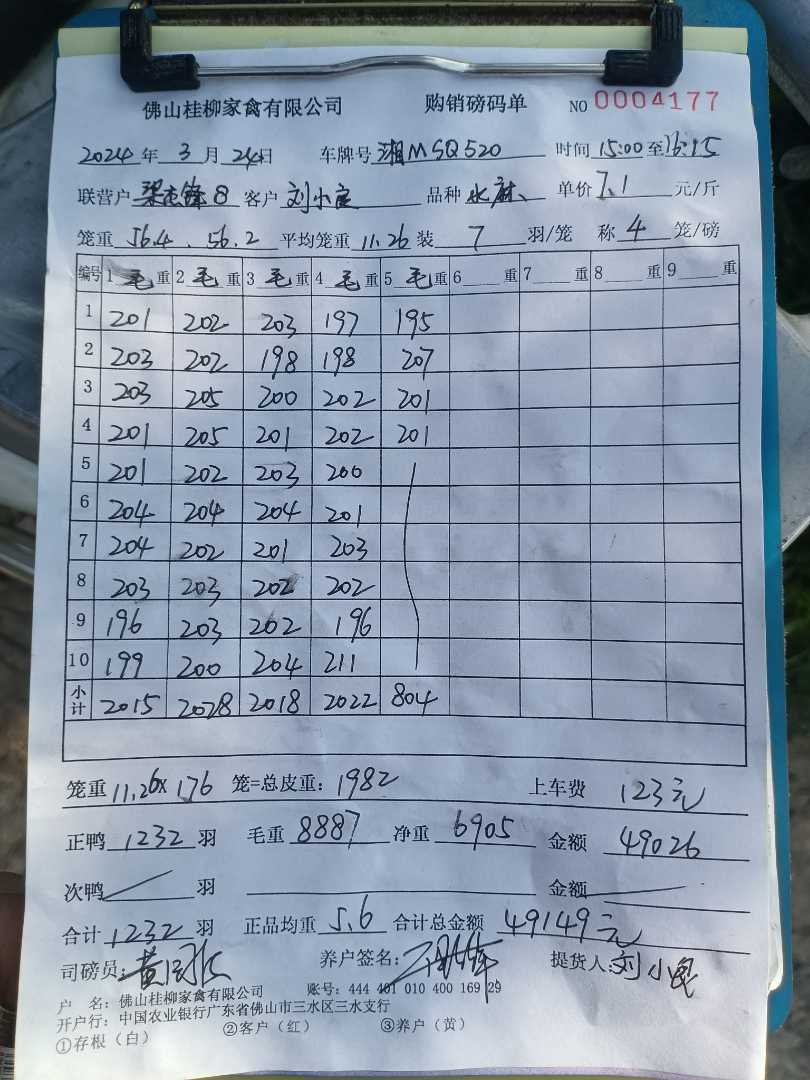 佛山桂柳家禽有限公司 购销磅码单 NO 0004177
2024年3月24日 车牌号 湘MSQ520 时间 15:00至16:15
联营户 梁杰锋8 客户 刘小良 品种 水麻 单价 7.1 元/斤
笼重 56.4、56.2 平均笼重 11.26 装 7 羽/笼 称 4 笼/磅
编号 1 毛 重 2 毛 重 3 毛 重 4 毛 重 5 毛 重 6 重 7 重 8 重 9 重
1 201 202 203 197 195
2 203 202 198 198 207
3 203 205 200 202 201
4 201 205 201 202 201
5 201 202 203 200
6 204 204 204 201
7 204 202 201 203
8 203 203 202 202
9 196 203 202 196
10 199 200 204 211
小计 2015 2028 2018 2022 804
笼重 11.26×176 笼=总皮重：1982 上车费 123元
正鸭 1232 羽 毛重 8887 净重 6905 金额 49026
次鸭 羽 金额
合计 1232 羽 正品均重 5.6 合计总金额 49149元
司磅员： 养户签名： 提货人：刘小良
户 名：佛山桂柳家禽有限公司 账号：444 401 010 400 169 29
开户行：中国农业银行广东省佛山市三水区三水支行
①存根（白） ②客户（红） ③养户（黄）